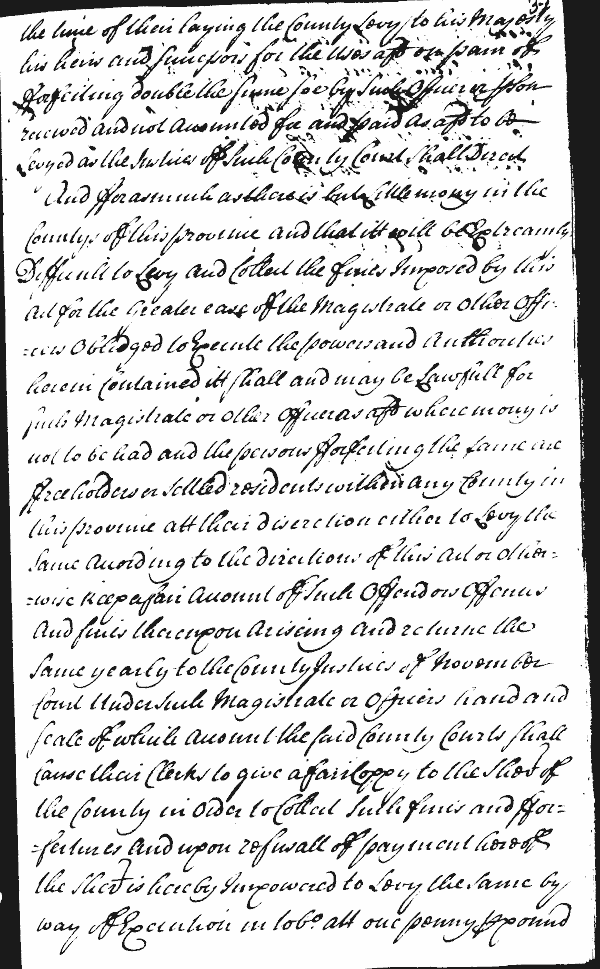 the time of their laying the County Levy to his Majesty
his heirs and Successors for the Uses afd on pain of
fforfeiting double the sume soe by such Officer or pson
received and not Accounted for and paid as afd to be
Levyed as the Justices of such County Court shall Direct
And fforasmuch as there is but little mony in the
Countys of this province and that itt will be Extreamly
Difficult to Levy and Collect the fines Imposed by this
Act for the Greater ease of the Magistrate or other Offi-
=cers Obliedged to Execute the powers and Authorities
herein Contained itt shall and may be Lawfull for
such Magistrate or other Officer as afd where mony is
not to be had and the persons fforfeiting the same are
ffreeholders or settled residents within any County in
this province att their discretion either to Levy the
same According to the directions of this Act or other-
=wise Keep a fair Account of such Offendors Offences
And fines thereupon Arising And returne the
same yearly to the County Justices of November
Court Under such Magistrate or Officers hand and
seale of which Account the said County Courts shall
Cause their Clerks to give a fair Coppy to the Sher of
the County in Order to Collect such fines and ffor=
=feitures And upon refusall of payment hereof
the Sher is hereby Impowered to Levy the same by
way of Execution in tobo. att one penny p pound